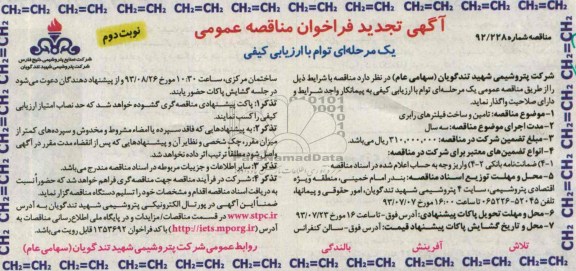 مناقصه شماره ۹۲/۲۲۸
آگهی تجدید فراخوان مناقصه عمومی
یک مرحله‌ای توام با ارزیابی کیفی
نوبت دوم
شرکت صنایع پتروشیمی خلیج فارس
شرکت پتروشیمی شهید تندگویان
شرکت پتروشیمی شهید تندگویان (سهامی عام) در نظر دارد مناقصه با شرایط ذیل
را از طریق مناقصه عمومی یک مرحله‌ای توام با ارزیابی کیفی به پیمانکار واجد شرایط و
دارای صلاحیت واگذار نماید.
۱- موضوع مناقصه: تامین و ساخت فیلترهای رابری
۲- مدت اجرای موضوع مناقصه: سه سال
۳- مبلغ تضمین شرکت در مناقصه: ۳۱۰٫۰۰۰٫۰۰۰ ریال می‌باشد.
۴- انواع تضمین‌های معتبر برای شرکت در مناقصه:
۴-۱) ضمانتنامه بانکی ۴-۲) واریز وجه به حساب اعلام شده در اسناد مناقصه
۵- محل و مهلت توزیع اسناد مناقصه: بندر امام خمینی، منطقه ویژه
اقتصادی پتروشیمی، سایت ۴ پتروشیمی شهید تندگویان، امور حقوقی و پیمانها،
تلفن ۵۲۰۴۵-۰۶۵۲۲۶ تا ساعت ۱۶:۰۰ مورخ ۹۳/۰۷/۰۷
۶- محل و مهلت تحویل پاکات پیشنهادی: آدرس فوق- تا ساعت ۱۶ مورخ ۹۳/۰۷/۲۳
۷- محل و تاریخ گشایش پاکات پیشنهاد قیمت: آدرس فوق- سالن کنفرانس
ساختمان مرکزی، ساعت ۱۰:۳۰ مورخ ۹۳/۰۸/۲۶ و از پیشنهاد دهندگان دعوت می‌شود
در جلسه گشایش پاکات حضور یابند.
تذکر۱: پاکت پیشنهادی مناقصه‌گری گشوده خواهد شد که حد نصاب امتیاز ارزیابی
کیفی را کسب نمایند.
تذکر۲: به پیشنهادهایی که فاقد سپرده یا امضاء مشروط و مخدوش و سپرده‌های کمتر از
میزان مقرر، چک شخصی و نظایر آن و پیشنهادهایی که پس از انقضاء مدت مقرر در آگهی
واصل گردد مطلقا ترتیب اثر داده نخواهد شد.
تذکر۳: سایر اطلاعات و جزییات مربوطه در اسناد مناقصه مندرج می‌باشد.
تذکر۴: شرکت در فرآیند مناقصه جهت مناقصه‌گری فراهم خواهد شد که حضوراً نسبت
به دریافت اسناد مناقصه اقدام و مشخصات خود را تسلیم دستگاه مناقصه گزار نماید.
ضمنا این آگهی در پورتال الکترونیکی پتروشیمی شهید تندگویان به آدرس
www.stpc.ir در قسمت مناقصات/مزایدات و در پایگاه ملی اطلاع رسانی مناقصات به
آدرس (http://iets.mporg.ir) با کد فراخوان ۱۳۵۳۶۹۲ قابل رویت می‌باشد.
تلاش آفرینش بالندگی
روابط عمومی شرکت پتروشیمی شهید تندگویان (سهامی عام)